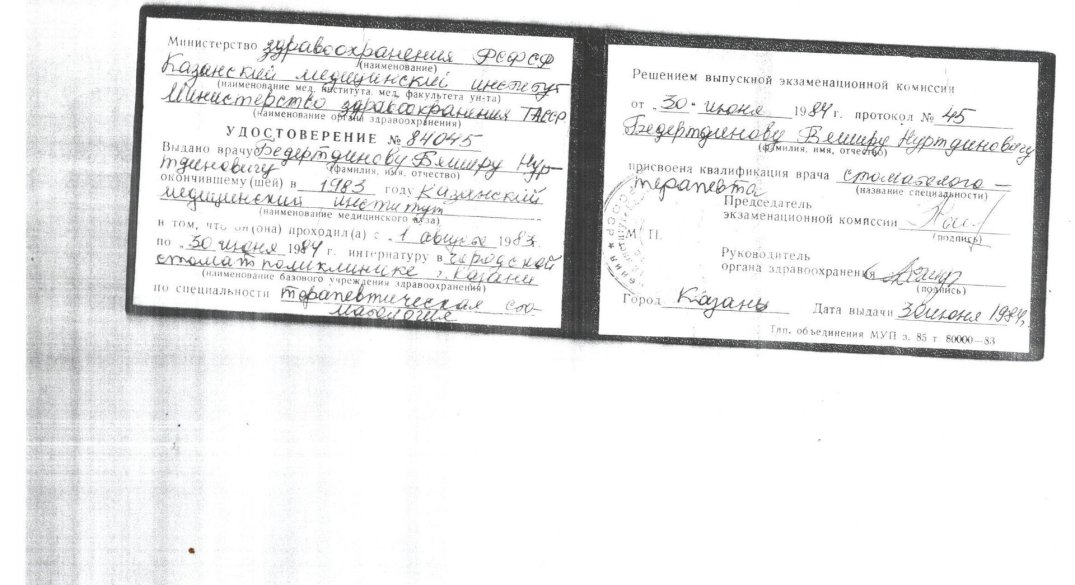 Министерство здравоохранения РСФСР
(наименование)
Казанский медицинский институт
(наименование мед. института, мед. факультета ун-та)
Министерство здравоохранения ТАССР
(наименование органа здравоохранения)
УДОСТОВЕРЕНИЕ № 84045
Выдано врачу Бедертдинову Бяширу Нур-
тдиновичу
(фамилия, имя, отчество)
окончившему(шей) в 1983 году Казанский
медицинский институт
(наименование медицинского вуза)
в том, что он(она) проходил(а) с „1 августа 1983.
по „30 июня 1984 г. интернатуру в городской
стомат поликлинике г. Казани
(наименование базового учреждения здравоохранения)
по специальности терапевтическая сто-
матология
Решением выпускной экзаменационной комиссии
от „30 - июня 1984 г. протокол № 45
Бедертдинову Бяширу Нуртдиновичу
(фамилия, имя, отчество)
присвоена квалификация врача стоматолога -
(название специальности)
терапевта
Председатель
экзаменационной комиссии
(подпись)
М. П.
Руководитель
органа здравоохранения
(подпись)
Город Казань Дата выдачи 30 июня 1984г.
Тип. объединения МУП з. 85 т. 80000—83